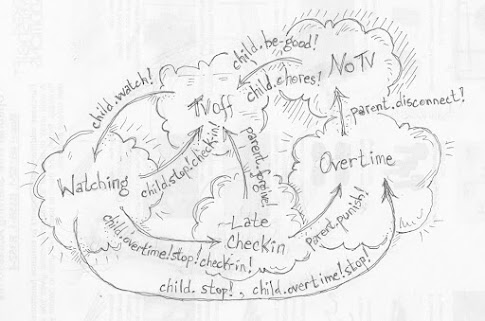 child.be-good!
NoTv
child.chores!
child.watch!
TVoff
parent.disconnect!
child.stop!check-in!
parent.forgive!
Overtime
Watching
Late
Checkin
parent.punish!
child.overtime!stop!check-in!
child.stop!, child.overtime!stop!